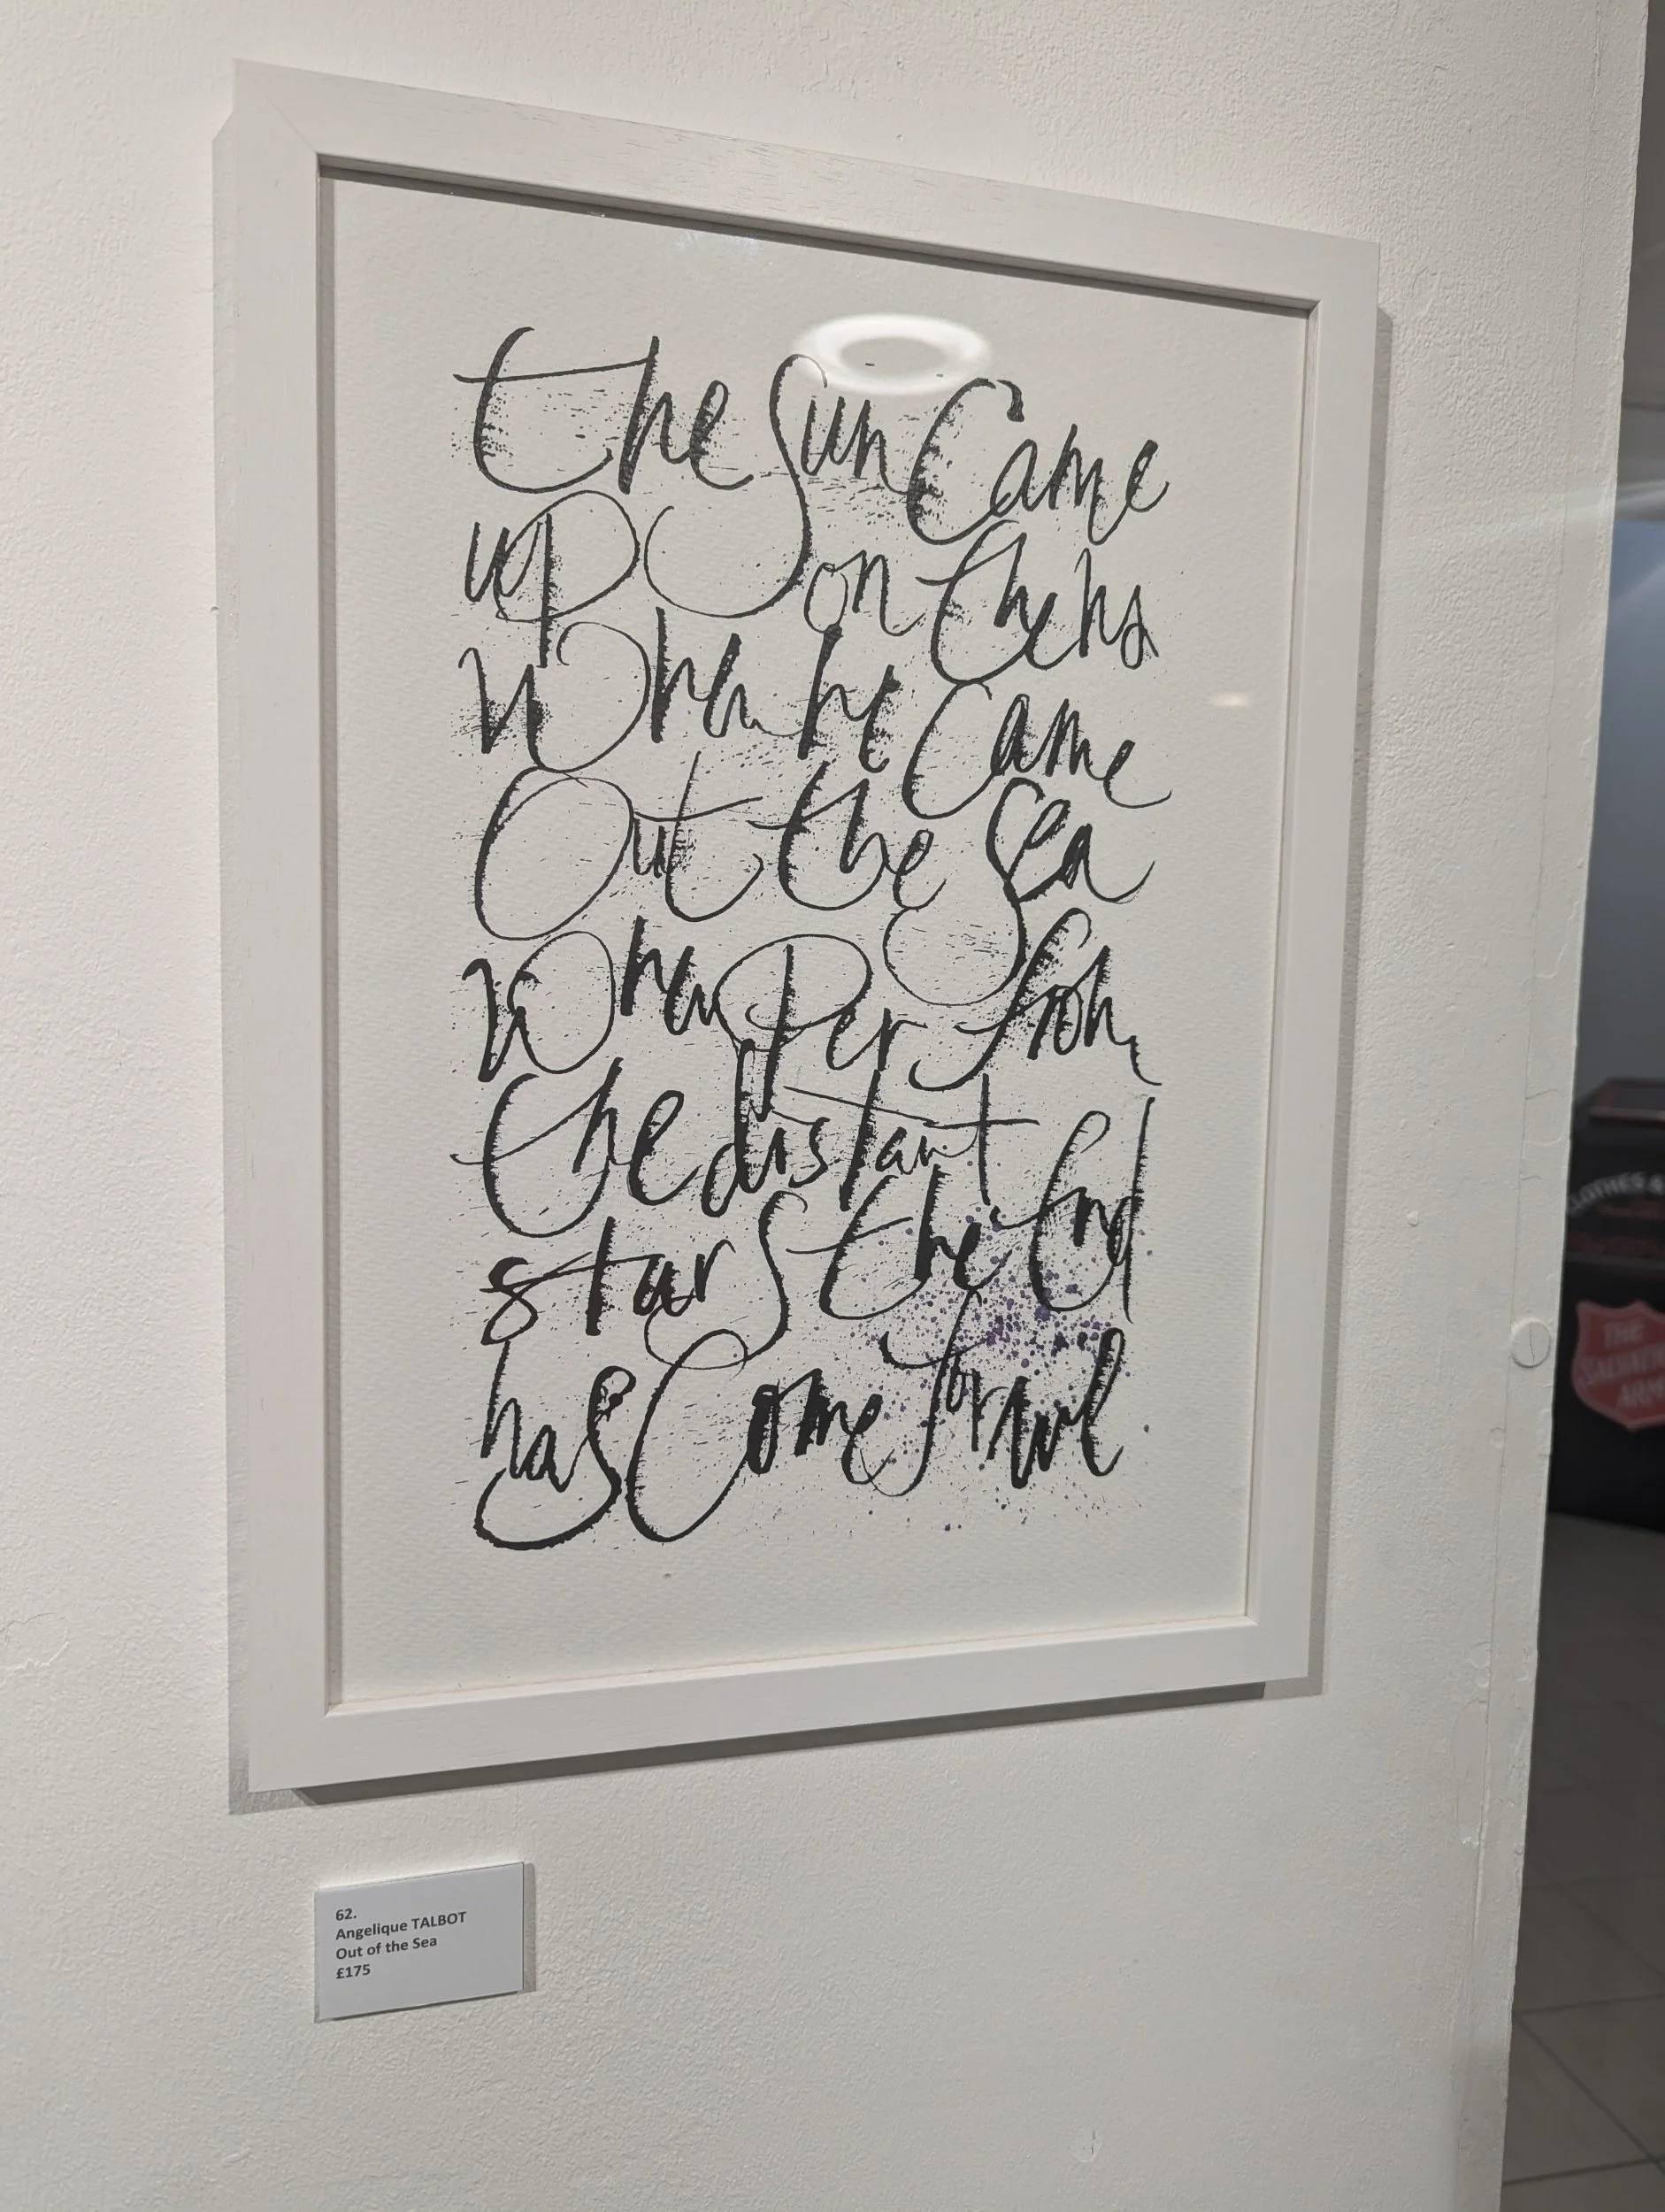 the Sun Came
up on the
When he Came
Out the Sea
When Per from
the distant
stars the End
has Come for
62.
Angelique TALBOT
Out of the Sea
£175
CLOTHES &
THE